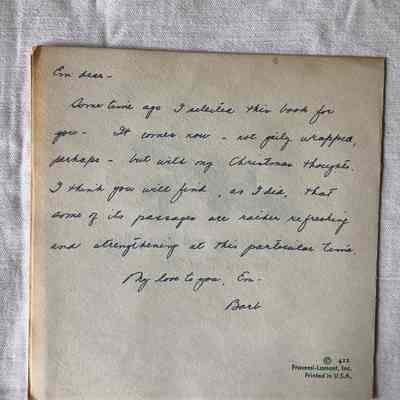 Em dear -
Some time ago I selected this book for
you - It comes now - not gaily wrapped,
perhaps - but with my Christmas thoughts.
I think you will find, as I did, that
some of its passages are rather refreshing
and strengthening at this particular time.
My love to you, Em -
Barb
© 422
Provensi-Lamont, Inc.
Printed in U.S.A.